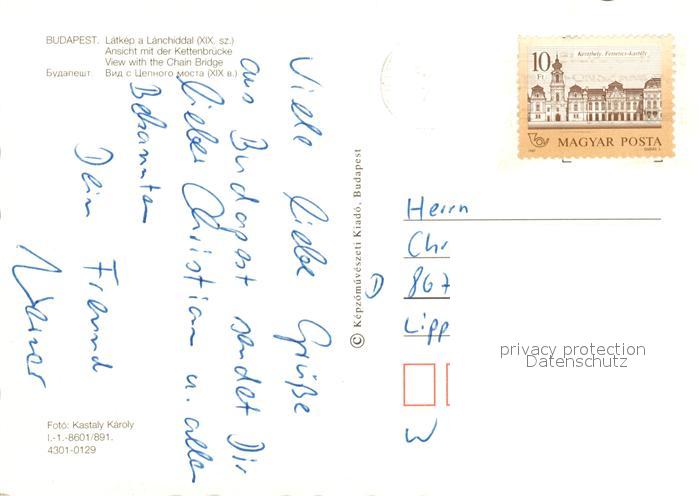 BUDAPEST. Látkép a Lánchiddal (XIX. sz.)
Ansicht mit der Kettenbrücke
View with the Chain Bridge
Будапешт. Вид с Цепного моста (XIX в.)
Viele liebe Grüße
aus Budapest sendet Dir
lieber Christian u. allen
Bekannten
Dein Freund
© Képzőművészeti Kiadó, Budapest
10 Ft
Keszthely, Festetics-kastély
MAGYAR POSTA
Herrn
Chr
D 867
Lipp
W
privacy protection
Datenschutz
Fotó: Kastaly Károly
I.-1.-8601/891.
4301-0129